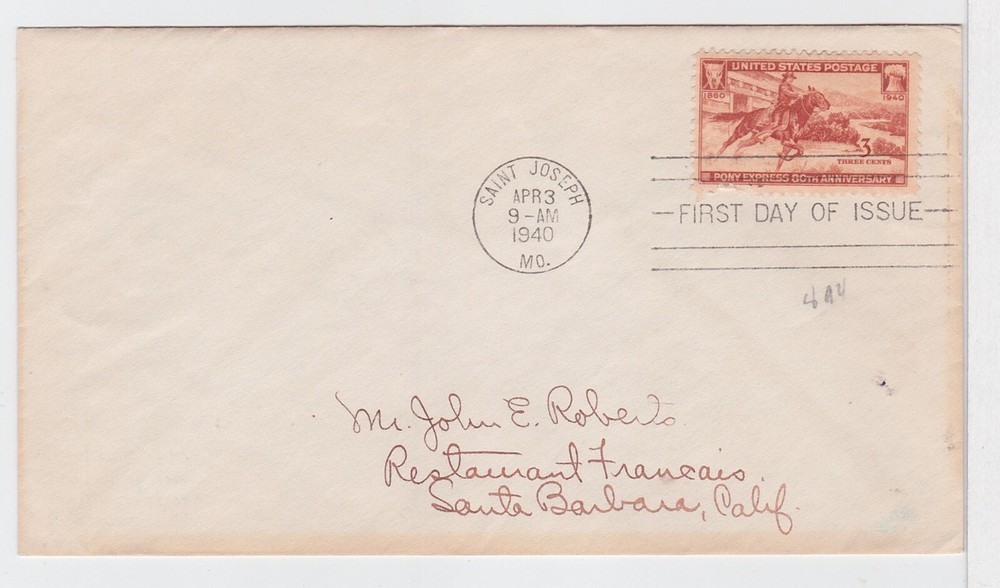 UNITED STATES POSTAGE
1860
1940
3
THREE CENTS
PONY EXPRESS 80TH ANNIVERSARY
SAINT JOSEPH
APR 3
9-AM
1940
MO.
FIRST DAY OF ISSUE
Mr. John E. Roberts
Restaurant Francais.
Santa Barbara, Calif.